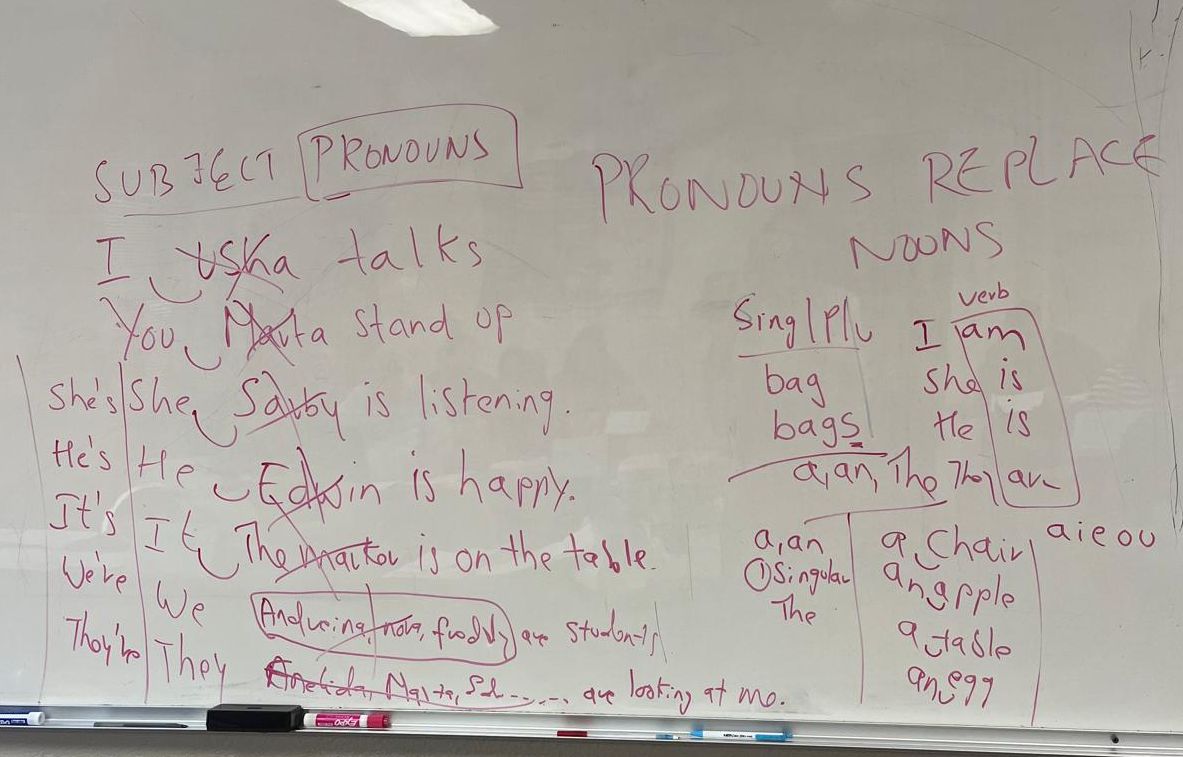 SUBJECT PRONOUNS
I Uska talks
You Marta stand up
She's She Sarby is listening.
He's He Edwin is happy.
It's It The marker is on the table.
We're We freddy are students
They're They Marta, are looking at me.
PRONOUNS REPLACE
NOUNS
Sing/Plu
bag
bags
a, an, The
verb
I am
She is
He is
They are
a, an
① Singular
The
a chair
an apple
a table
an egg
a i e o u
EXPO